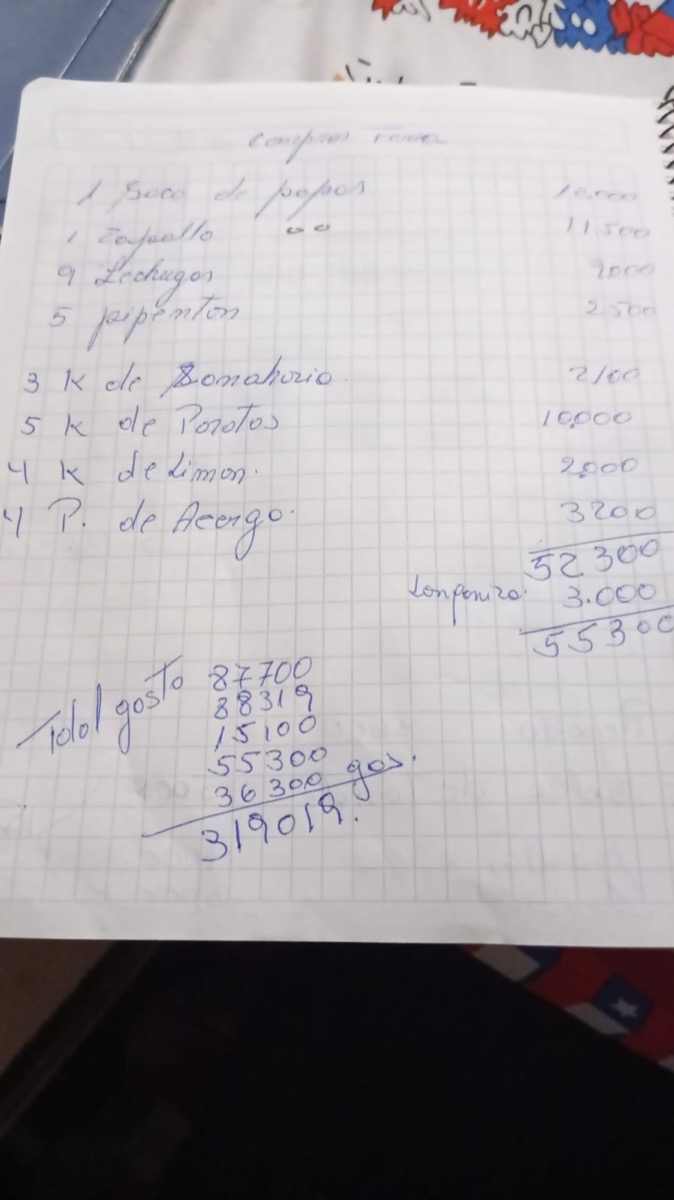 Compras Feria
1 Saco de papas 12.000
1 Zapallo 11.500
9 Lechugas 9000
5 pipenton 2500
3 K de Zanahoria. 2100
5 K de Porotos 10,000
4 K de Limon. 2,000
4 P. de Acerga. 3200
52300
Longaniza. 3.000
55300
Total gasto 87700
15100
55300
36300 gas.
319019.